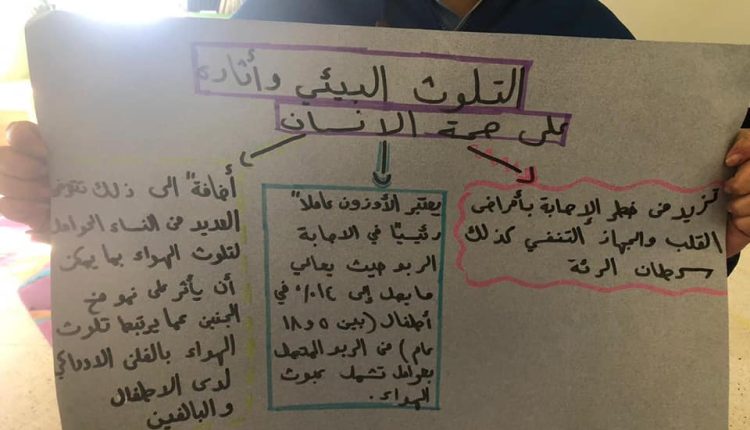 التلوث البيئي وأثاره
على صحة الانسان
تزيد من خطر الإصابة بأمراض
القلب والجهاز التنفسي كذلك
سرطان الرئة
يعتبر الأوزون عاملاً
رئيسيًا في الاصابة
الربو حيث يعاني
ما يصل إلى ١٤٪ في
أطفال (بين ٥ و ١٨
عام) من الربو المتصل
بعوامل تشمل
الهواء.
أضافة" الى ذلك تتعرض
العديد من النساء الحوامل
لتلوث الهواء بما يمكن
أن يأثر على نمو مخ
الجنين عما يرتبط تلوث
الهواء بالقلق الادراكي
لدى الاطفال
والبالغين